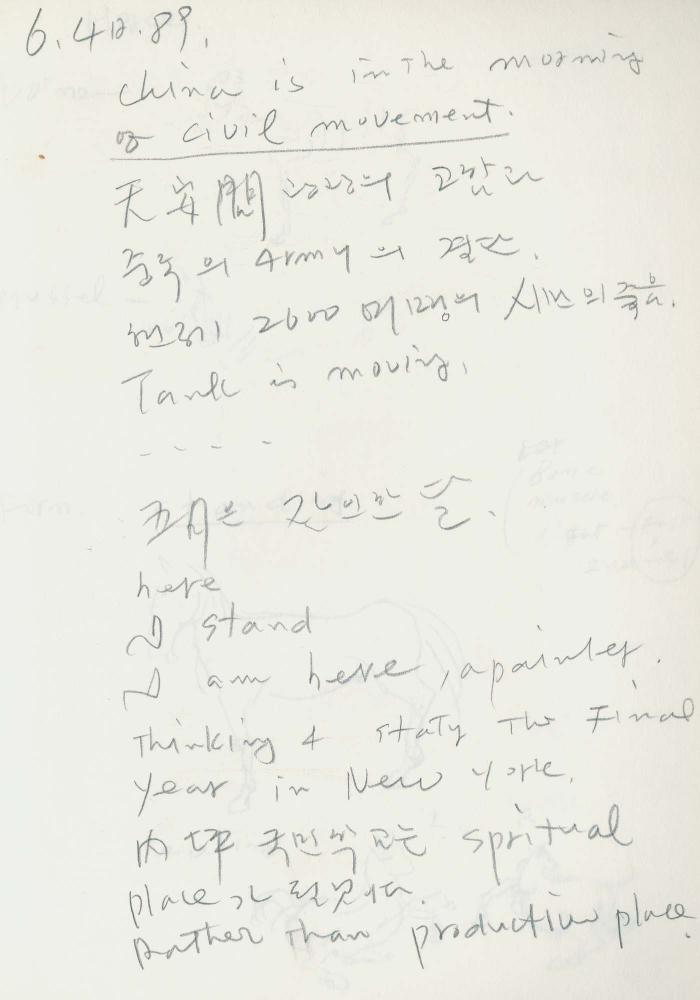 6.4日.89.
China is in The morning
of civil movement.
天安門 광장의 고람과
중국의 Army의 결단.
현재 2600여명의 시민의 죽음.
Tank is moving,
- - - -
五月은 잔인한 달.
here
I stand
I am here, a painter.
Thinking & staty The Final
Year in New York.
内坪 국민학교는 spritual
place가 될것이다.
Rather Than production place.